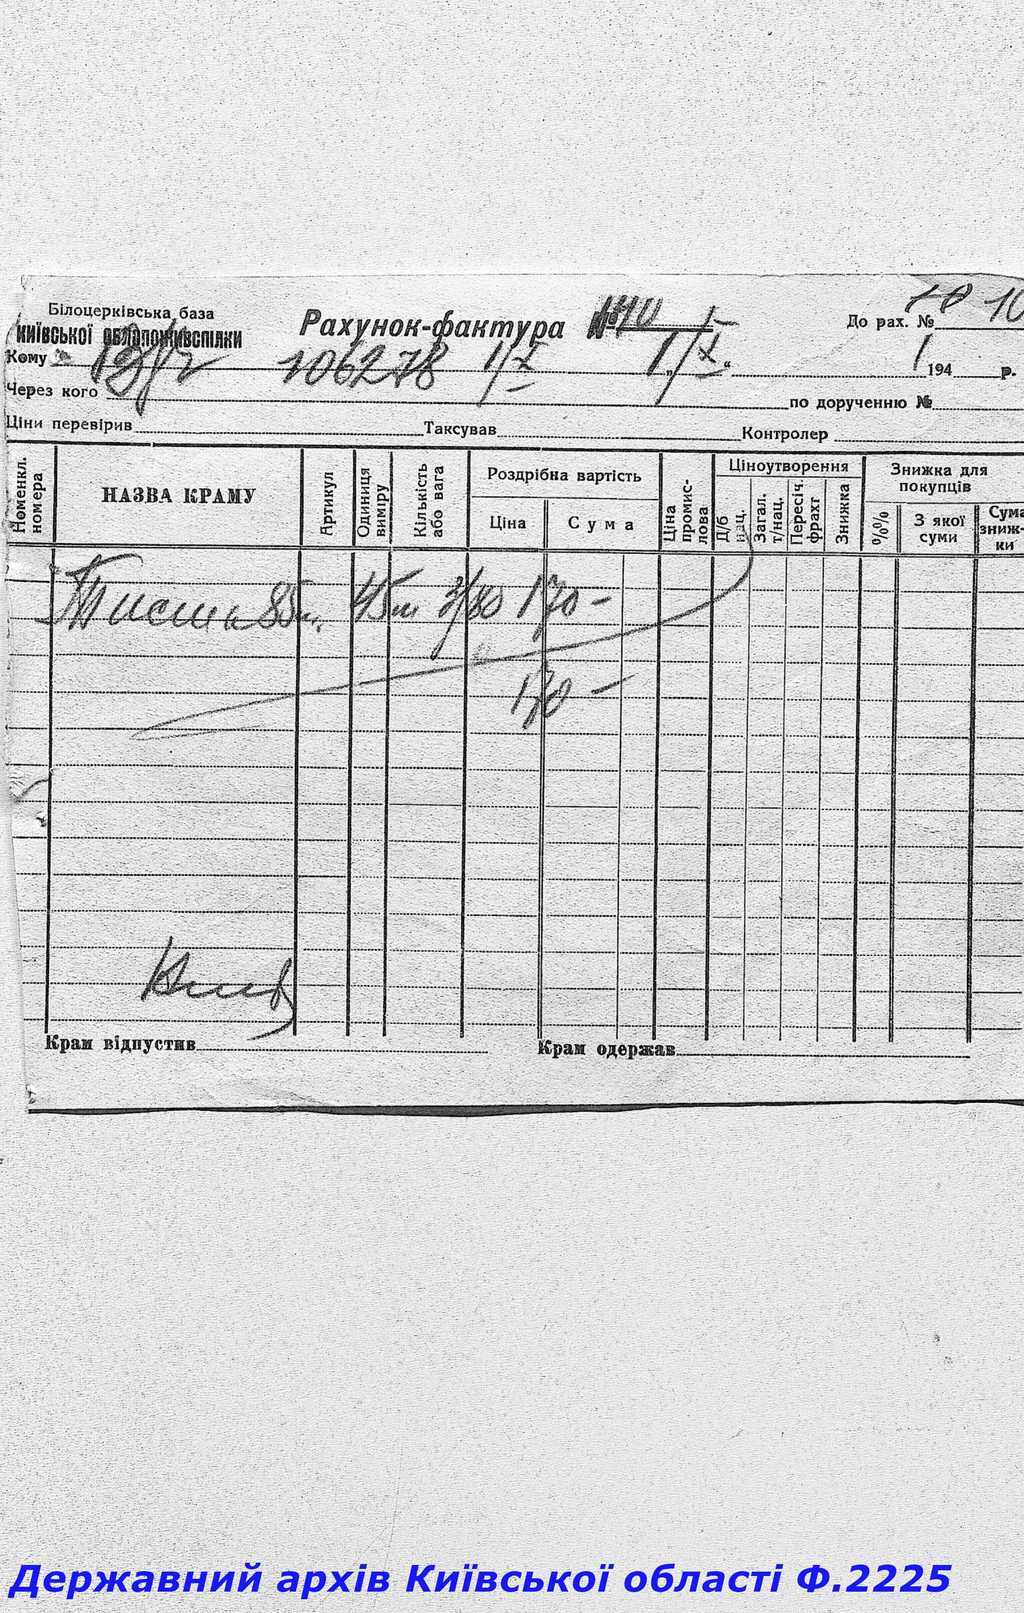 Білоцерківська база
КИЇВСЬКОЇ ОБЛСПОЖИВСПІЛКИ
Рахунок-фактура № 40
До рах. № 10
Кому 106278 1/X 1/X 1 194 р.
Через кого по дорученню №
Ціни перевірив Таксував Контролер
Номенкл. номера
НАЗВА КРАМУ
Артикул
Одиниця виміру
Кількість або вага
Роздрібна вартість
Ціна
Сума
Ціна промис-лова
Ціноутворення
Д/б нац.
Загал. т/нац.
Пересіч. фрахт
Знижка
Знижка для покупців
%%
З якої суми
Сума зниж-ки
85 45 м 3/80 170 —
170 —
Крам відпустив Крам одержав
Державний архів Київської області Ф.2225